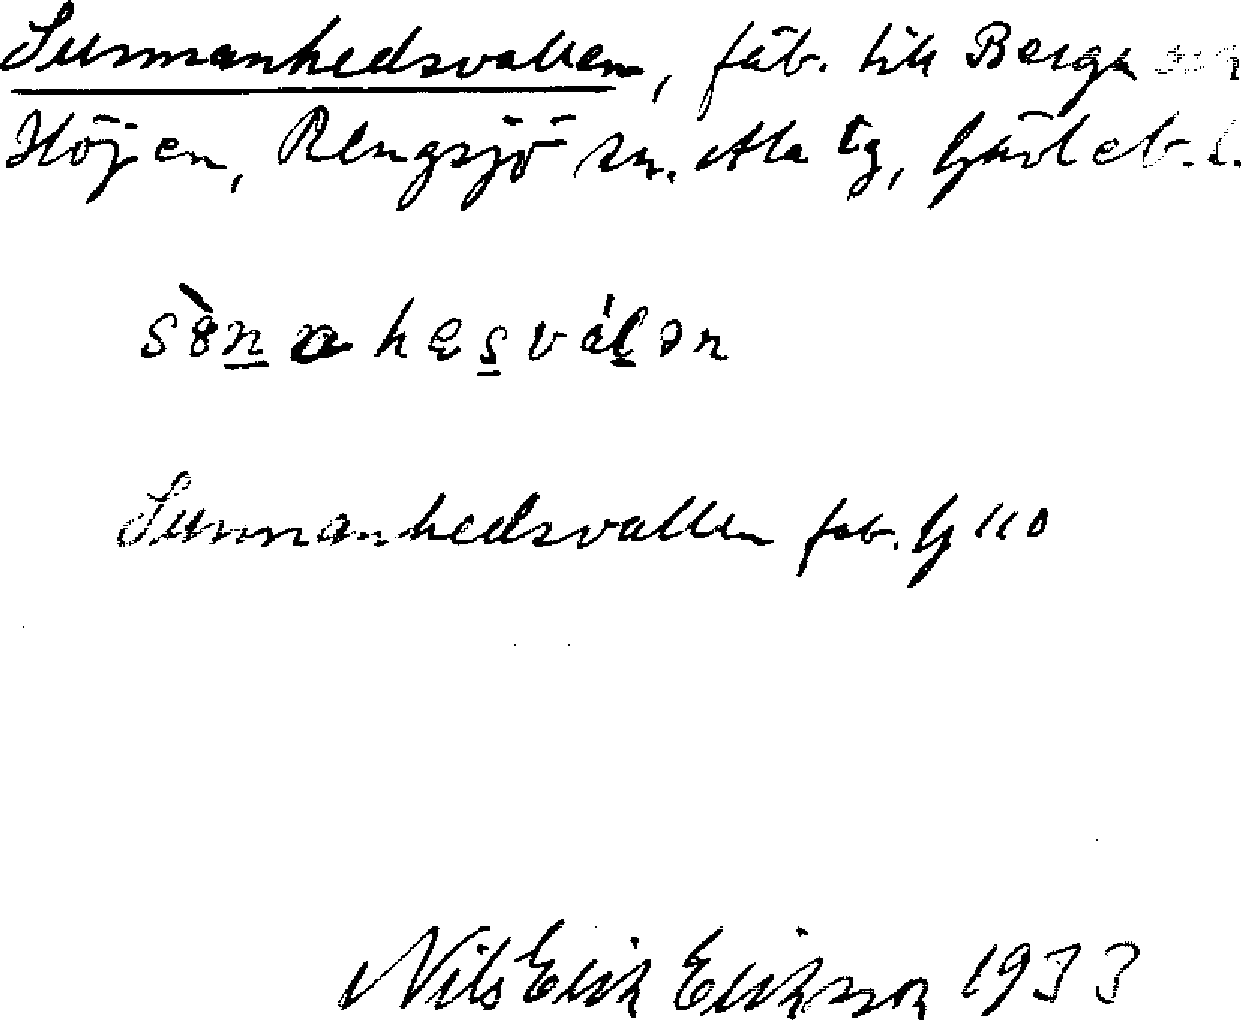 Sunnanhedsvallen, fäb. till Berga och
Höjen, Rengsjö sn. Ala tg, Gävleb. l.
Sunnanhedsvallen fäb. G 110
Nils Erik Erikson 1933